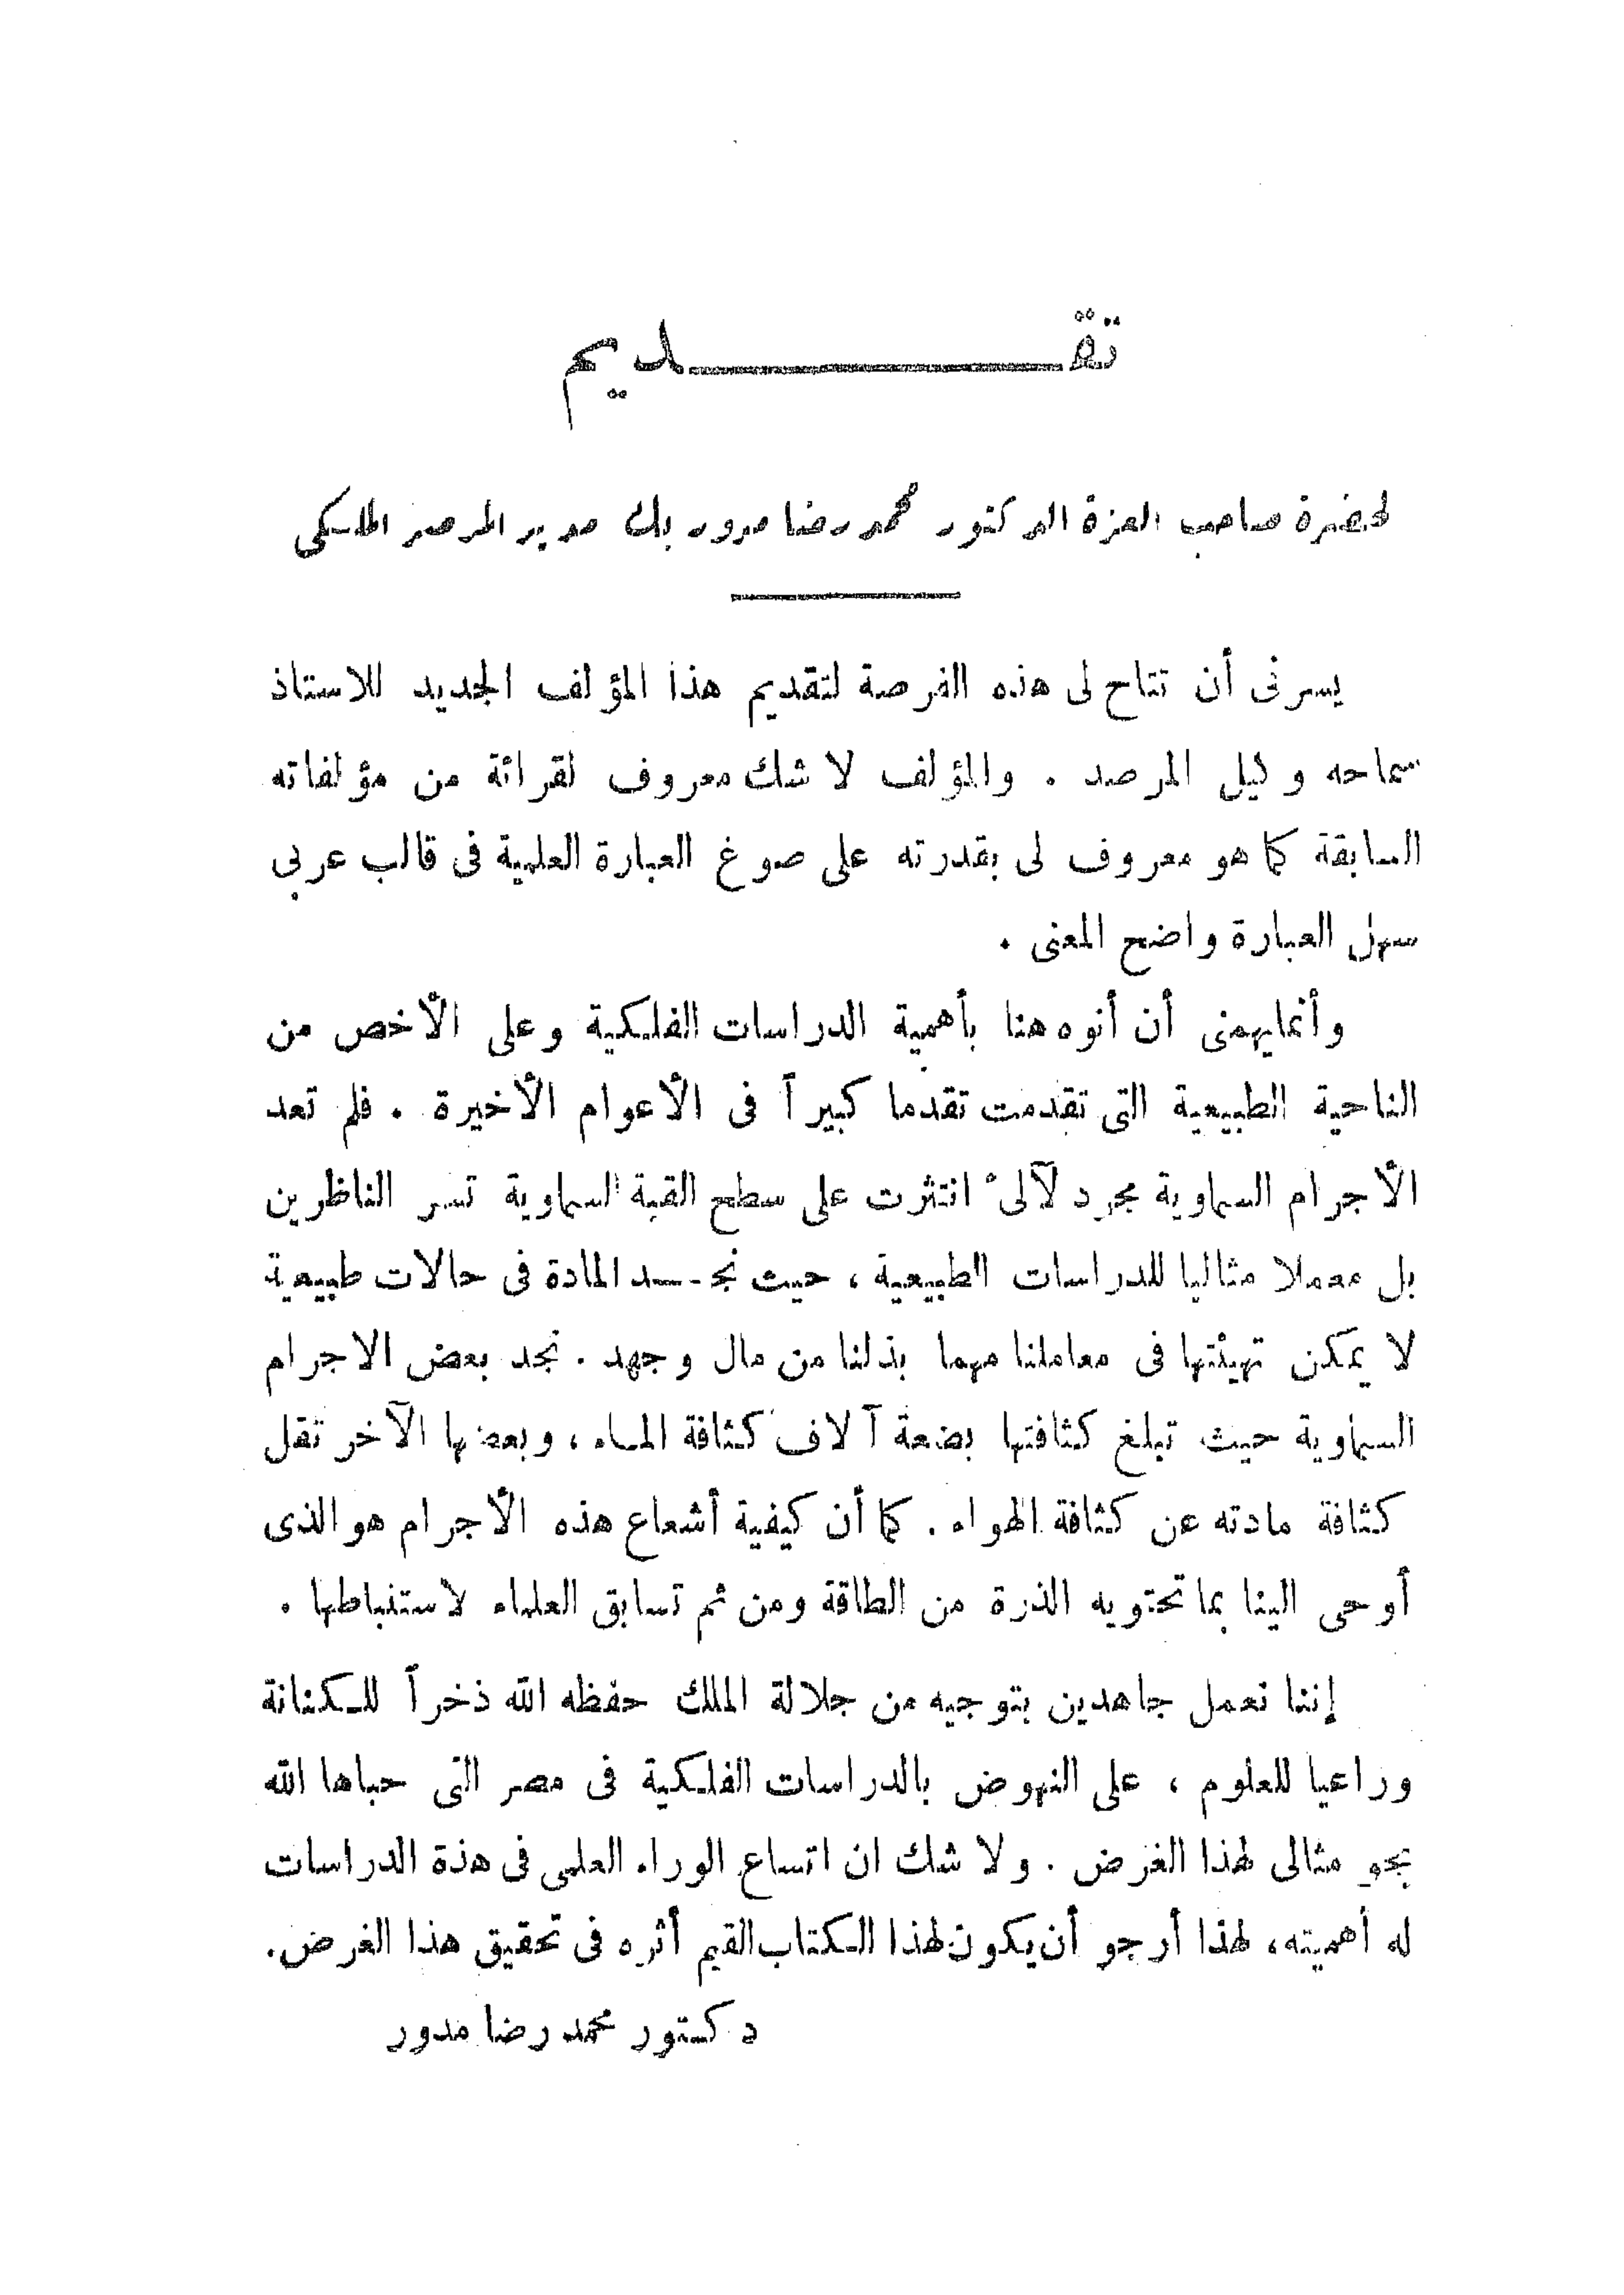 تقـــــديم
لحضرة صاحب العزة الدكتور محمد رضا مدور بك مدير المرصد الملكى
يسرنى أن تتاح لى هذه الفرصة لتقديم هذا المؤلف الجديد للاستاذ
سماحه وكيل المرصد . والمؤلف لا شك معروف لقرائة من مؤلفاته
السابقة كما هو معروف لى بقدرته على صوغ العبارة العلمية فى قالب عربى
سهل العبارة واضح المعنى .
وأنما يهمنى أن أنوه هنا بأهمية الدراسات الفلكية وعلى الأخص من
الناحية الطبيعية التى تقدمت تقدما كبيراً فى الأعوام الأخيرة . فلم تعد
الأجرام السماوية مجرد لآلىء انتثرت على سطح القبة السماوية تسر الناظرين
بل معملا مثاليا للدراسات الطبيعية ، حيث نجـد المادة فى حالات طبيعية
لا يمكن تهيئتها فى معاملنا مهما بذلنا من مال وجهد . نجد بعض الاجرام
السماوية حيث تبلغ كثافتها بضعة آلاف كثافة الماء ، وبعضها الآخر تقل
كثافة مادته عن كثافة الهواء . كما أن كيفية أشعاع هذه الأجرام هو الذى
أوحى الينا بما تحتويه الذرة من الطاقة ومن ثم تسابق العلماء لاستنباطها .
إننا نعمل جاهدين بتوجيه من جلالة الملك حفظه الله ذخراً للكنانة
وراعيا للعلوم ، على النهوض بالدراسات الفلكية فى مصر التى حباها الله
بجو مثالى لهذا الغرض . ولا شك ان اتساع الوراء العلمى فى هذة الدراسات
له أهميته ، لهذا أرجو أن يكون لهذا الكتاب القيم أثره فى تحقيق هذا الغرض.
دكتور محمد رضا مدور